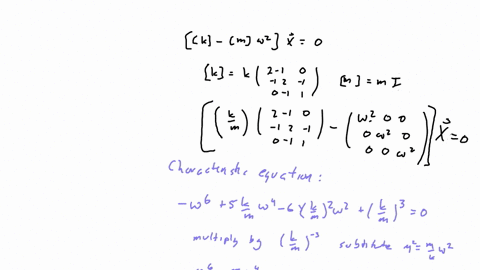 [[k] - [m] ω²] x⃗ = 0
[k] = k ( 2 -1 0
-1 2 -1
0 -1 1 ) [m] = m I
[ (k/m) ( 2 -1 0
-1 2 -1
0 -1 1 ) - ( ω² 0 0
0 ω² 0
0 0 ω² ) ] X⃗ = 0
Characteristic equation:
-ω⁶ + 5 k/m ω⁴ - 6 (k/m)² ω² + (k/m)³ = 0
multiply by (k/m)⁻³ substitute